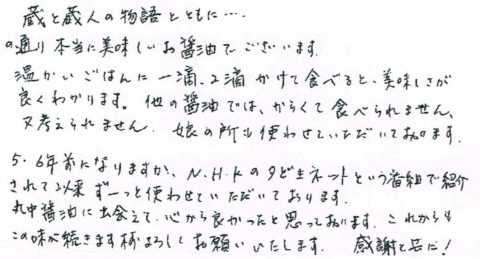 蔵と蔵人の物語とともに…
の通り本当に美味しいお醤油でございます.
温かいごはんに一滴、2滴かけて食べると、美味しさが
良くわかります。他の醤油では、からくて食べられません、
又考えられません. 娘の所も使わせていただいております.
5.6年前になりますか、N.H.Kの夕ど生ネットという番組で紹介
されて以来ずーっと使わせていただいております.
丸中醤油に出会えて.心から良かったと思っております. これからも
この味が続きます様よろしくお願いいたします. 感謝と共に!